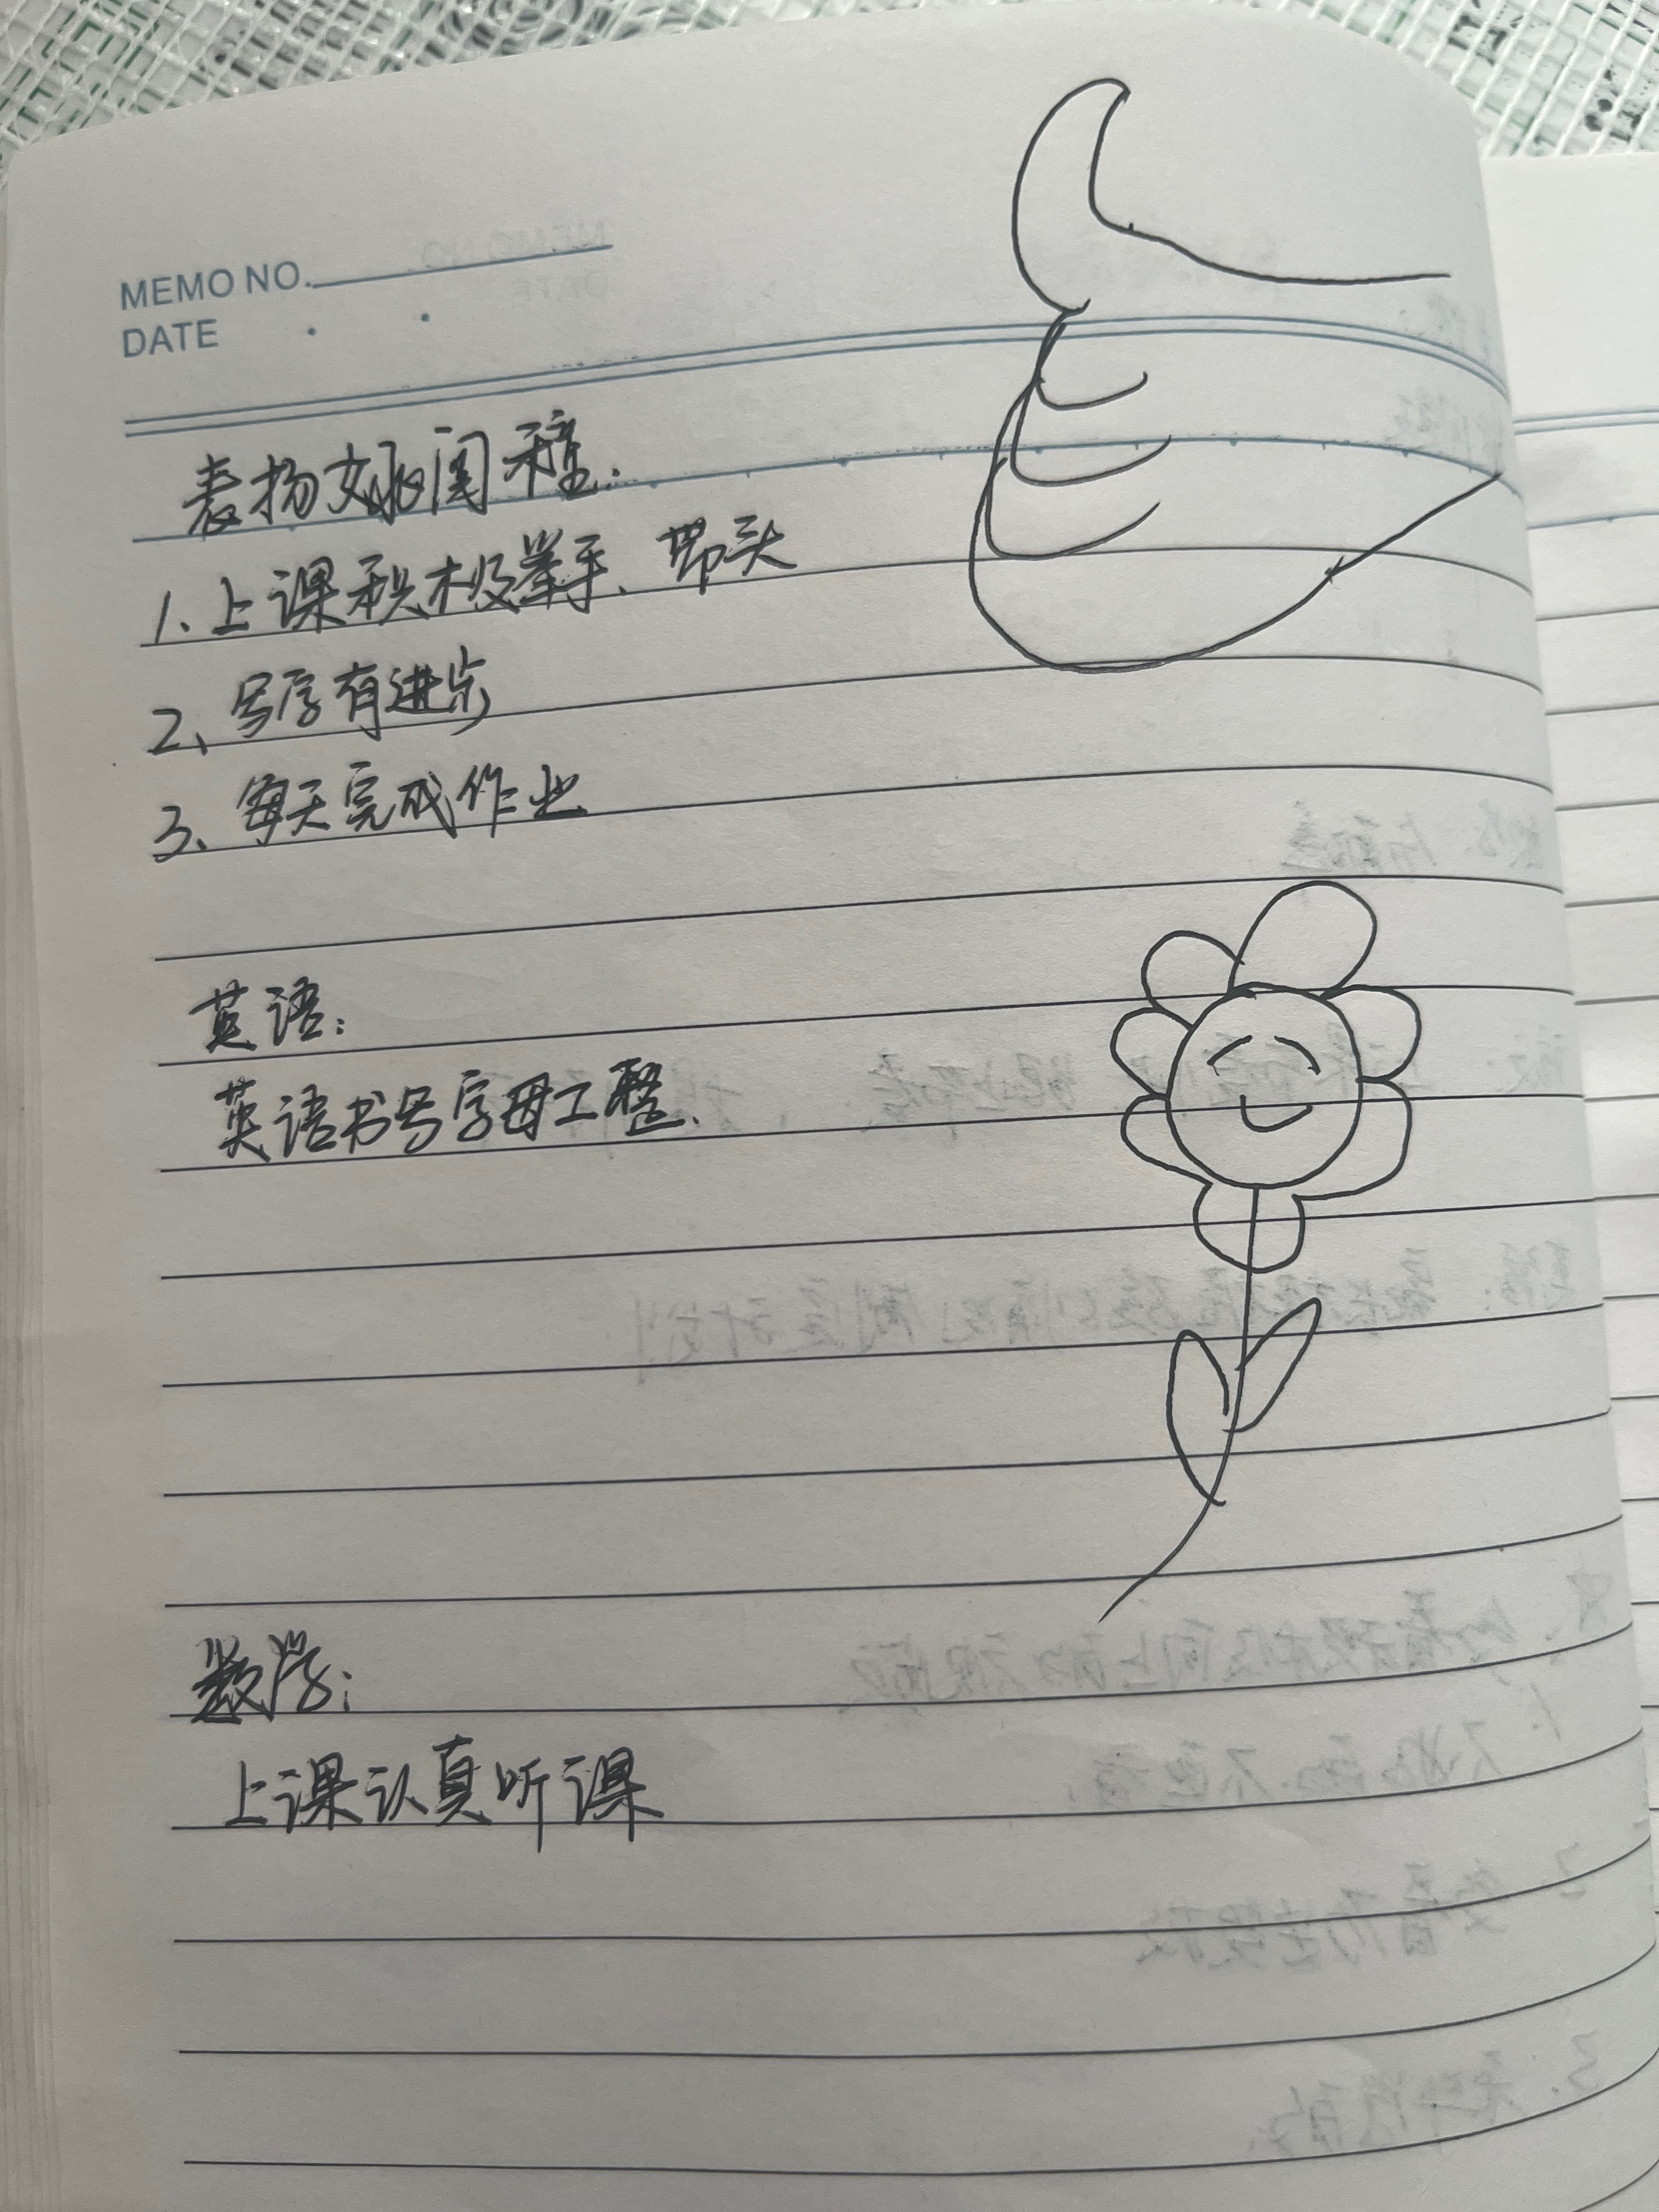 MEMO NO.
DATE
表扬姚闰穜:
1、上课积极举手、带头
2、写字有进步
3、每天完成作业
英语:
英语书写字母工整.
数学:
上课认真听课